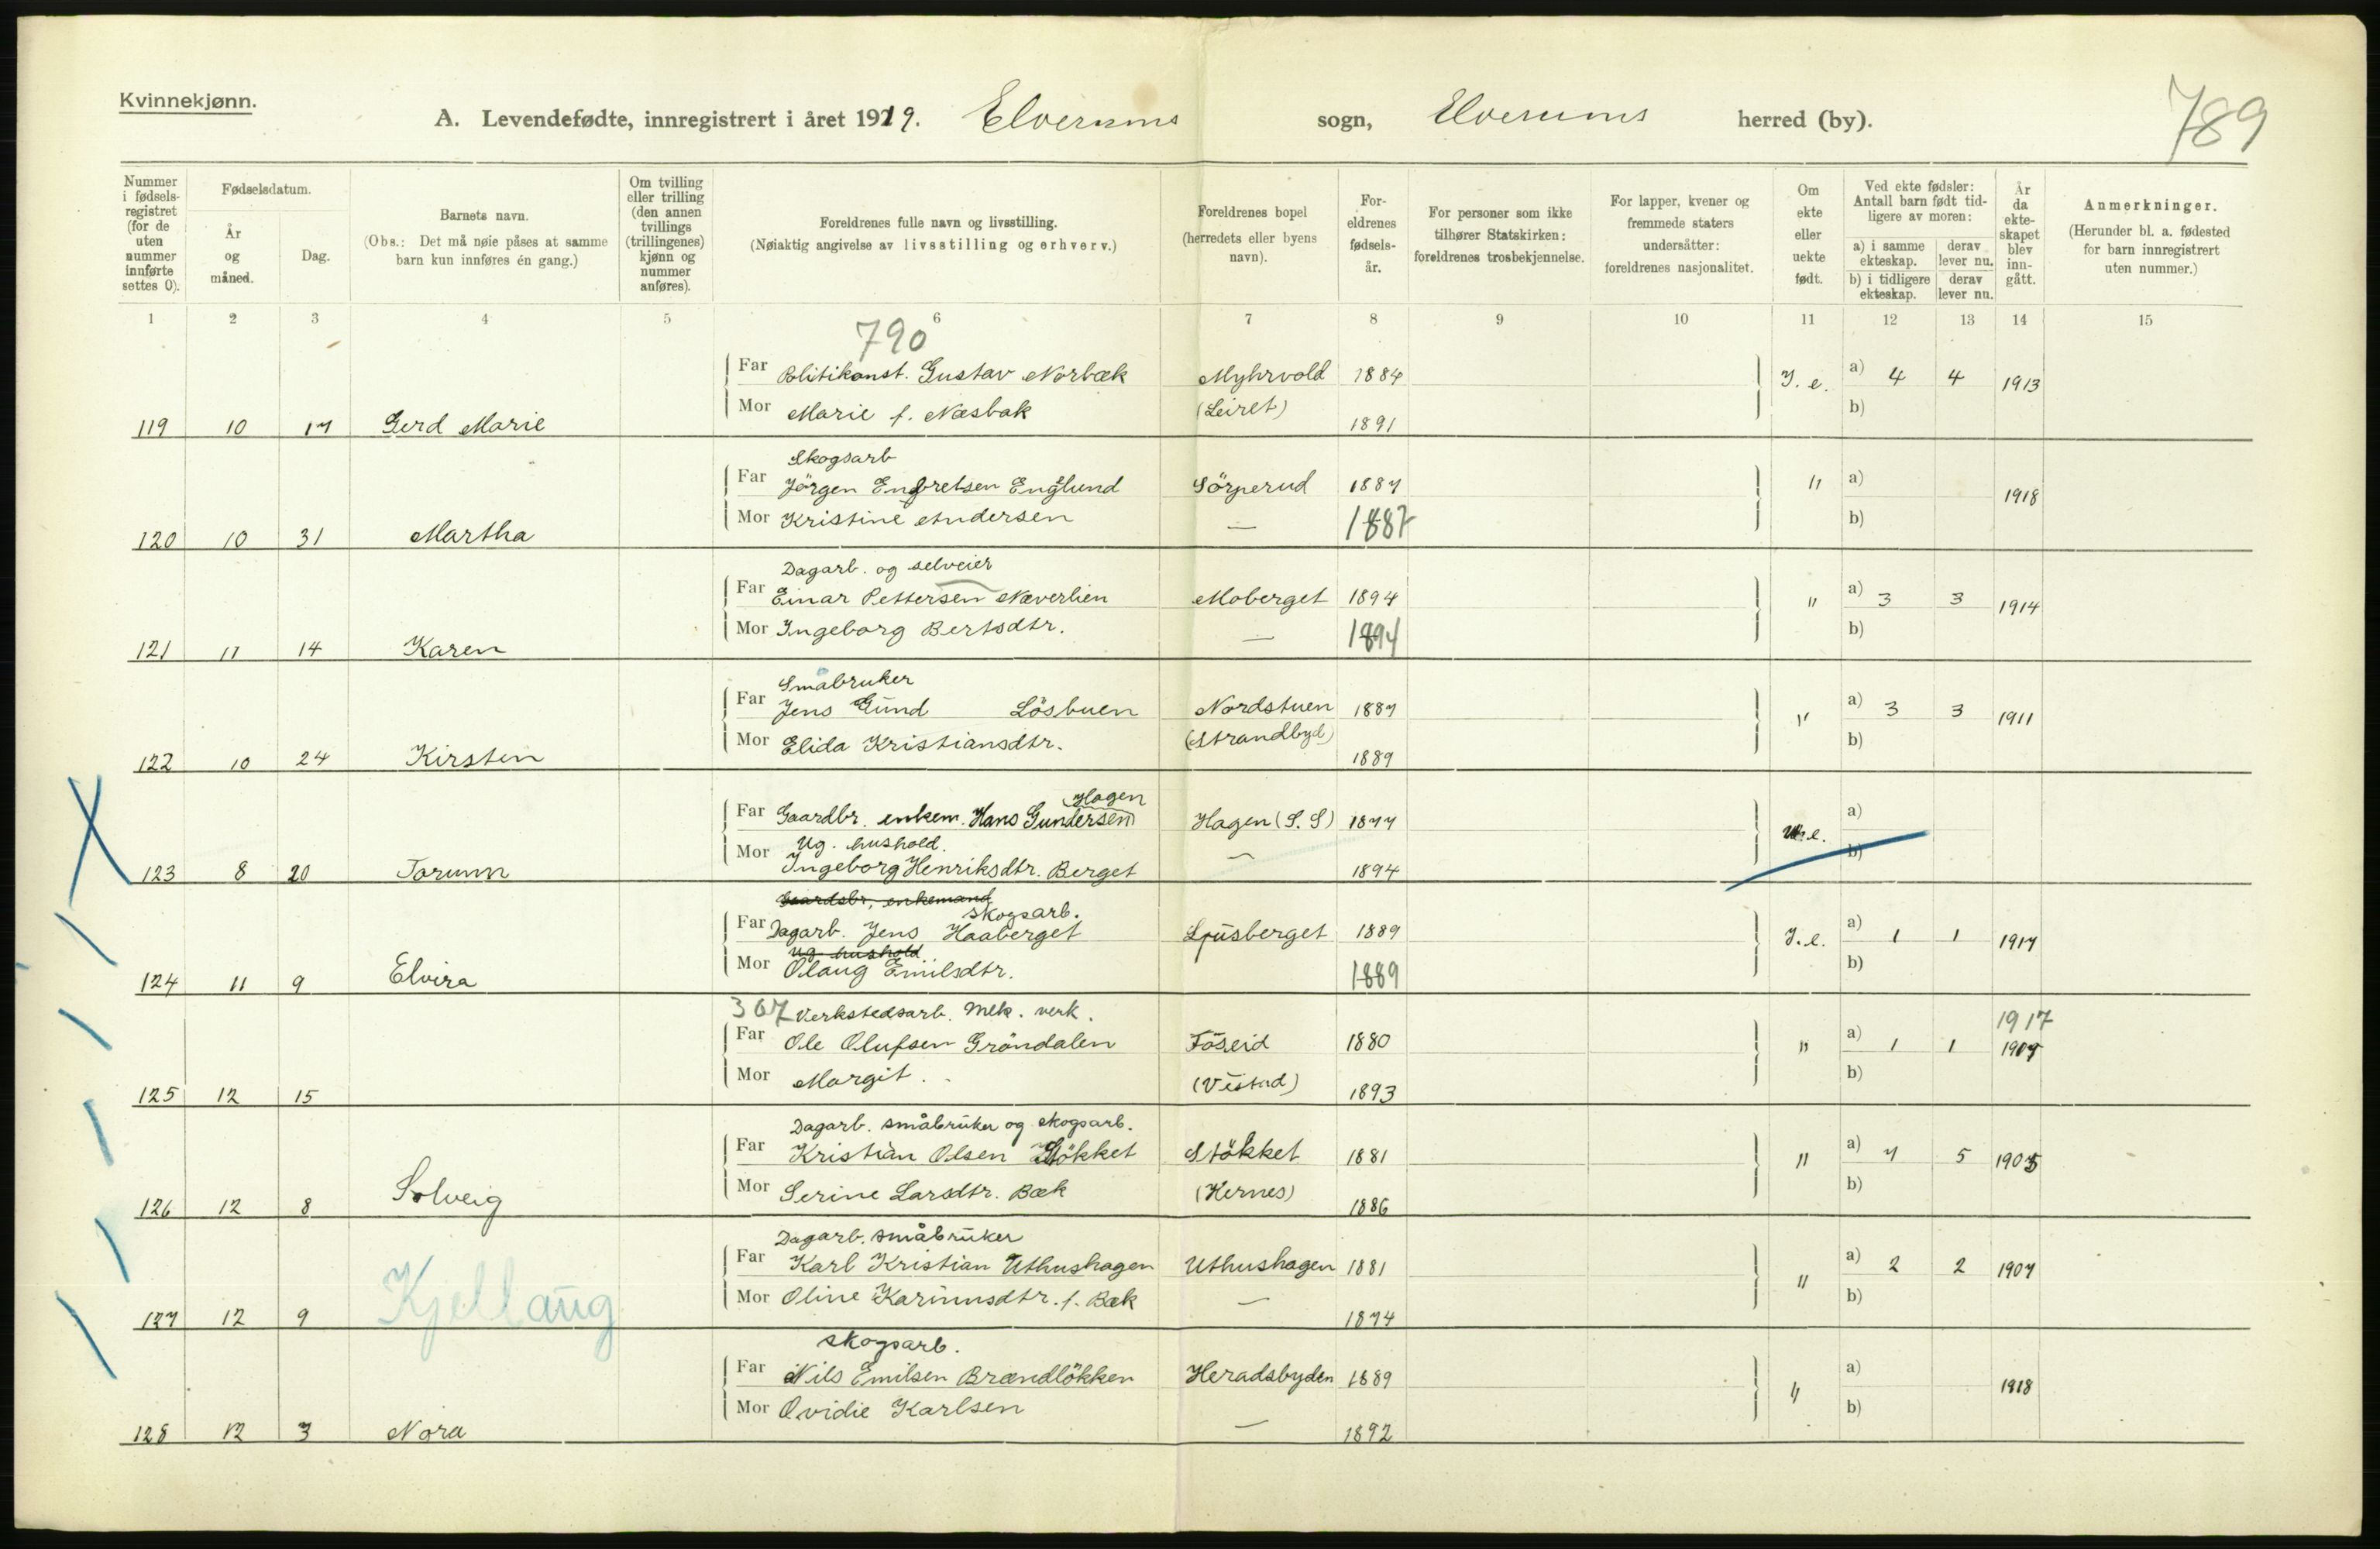 Kvinnekjønn.
A. Levendefødte, innregistrert i året 1919. Elverums sogn, Elverums herred (by). 789
Nummer i fødsels-registret (for de uten nummer innførte settes 0).
Fødselsdatum.
År og måned.
Dag.
Barnets navn.
(Obs.: Det må nøie påses at samme barn kun innføres én gang.)
Om tvilling eller trilling (den annen tvillings (trillingenes) kjønn og nummer anføres).
Foreldrenes fulle navn og livsstilling.
(Nøiaktig angivelse av livsstilling og erhverv.)
Foreldrenes bopel (herredets eller byens navn).
For-eldrenes fødsels-år.
For personer som ikke tilhører Statskirken: foreldrenes trosbekjennelse.
For lapper, kvener og fremmede staters undersåtter: foreldrenes nasjonalitet.
Om ekte eller uekte født.
Ved ekte fødsler: Antall barn født tid-ligere av moren:
a) i samme ekteskap.
derav lever nu.
b) i tidligere ekteskap.
derav lever nu.
År da ekte-skapet blev inn-gått.
Anmerkninger.
(Herunder bl. a. fødested for barn innregistrert uten nummer.)
1 2 3 4 5 6 7 8 9 10 11 12 13 14 15
790
Far Politikonst. Gustav Norbæk Myhrvold 1884 I. e. a) 4 4 1913
Mor Marie f. Næsbak (Leiret) 1891 b)
119 10 17 Gerd Marie
Skogsarb
Far Jörgen Engbretsen Englund Sörperud 1887 " a) 1918
Mor Kristine Andersen — 1887 b)
120 10 31 Martha
Dagarb. og selveier
Far Einar Pettersen Næverlien Moberget 1894 " a) 3 3 1914
Mor Ingeborg Bertsdtr. — 1894 b)
121 11 14 Karen
Småbruker
Far Jens Lösbuen Nordstuen 1887 " a) 3 3 1911
Mor Elida Kristiansdtr. (Strandbyd) 1889 b)
122 10 24 Kirsten
Hagen
Far Gaardbr. enkem. Hans Gundersen Hagen (S. S) 1877 U. e. a)
Ug. hushold.
Mor Ingeborg Henriksdtr. Berget — 1894 b)
123 8 20 Torunn
Gaardsbr, enkemand
skogsarb.
Far Dagarb. Jens Haaberget Ljusberget 1889 I. e. a) 1 1 1917
Ug. hushold
Mor Olaug Emilsdtr. 1889 b)
124 11 9 Elvira
367 Verkstedsarb. Mek. verk. 1917
Far Ole Olufsen Gröndalen Föseid 1880 " a) 1 1
Mor Margit. (Vestad) 1893 b)
125 12 15
Dagarb. småbruker og skogsarb.
Far Kristian Olsen Stökket Stökket 1881 " a) 7 5 1905
Mor Serine Larsdtr. Bæk (Hernes) 1886 b)
126 12 8 Solveig
Dagarb. småbruker
Far Karl Kristian Uthushagen Uthushagen 1881 " a) 2 2 1907
Mor Oline Karinusdtr. f. Bæk — 1874 b)
127 12 9 Kjellaug
skogsarb.
Far Nils Emilsen Brændlökken Heradsbyden 1889 " a) 1918
Mor Ovidie Karlsen — 1892 b)
128 12 3 Nora